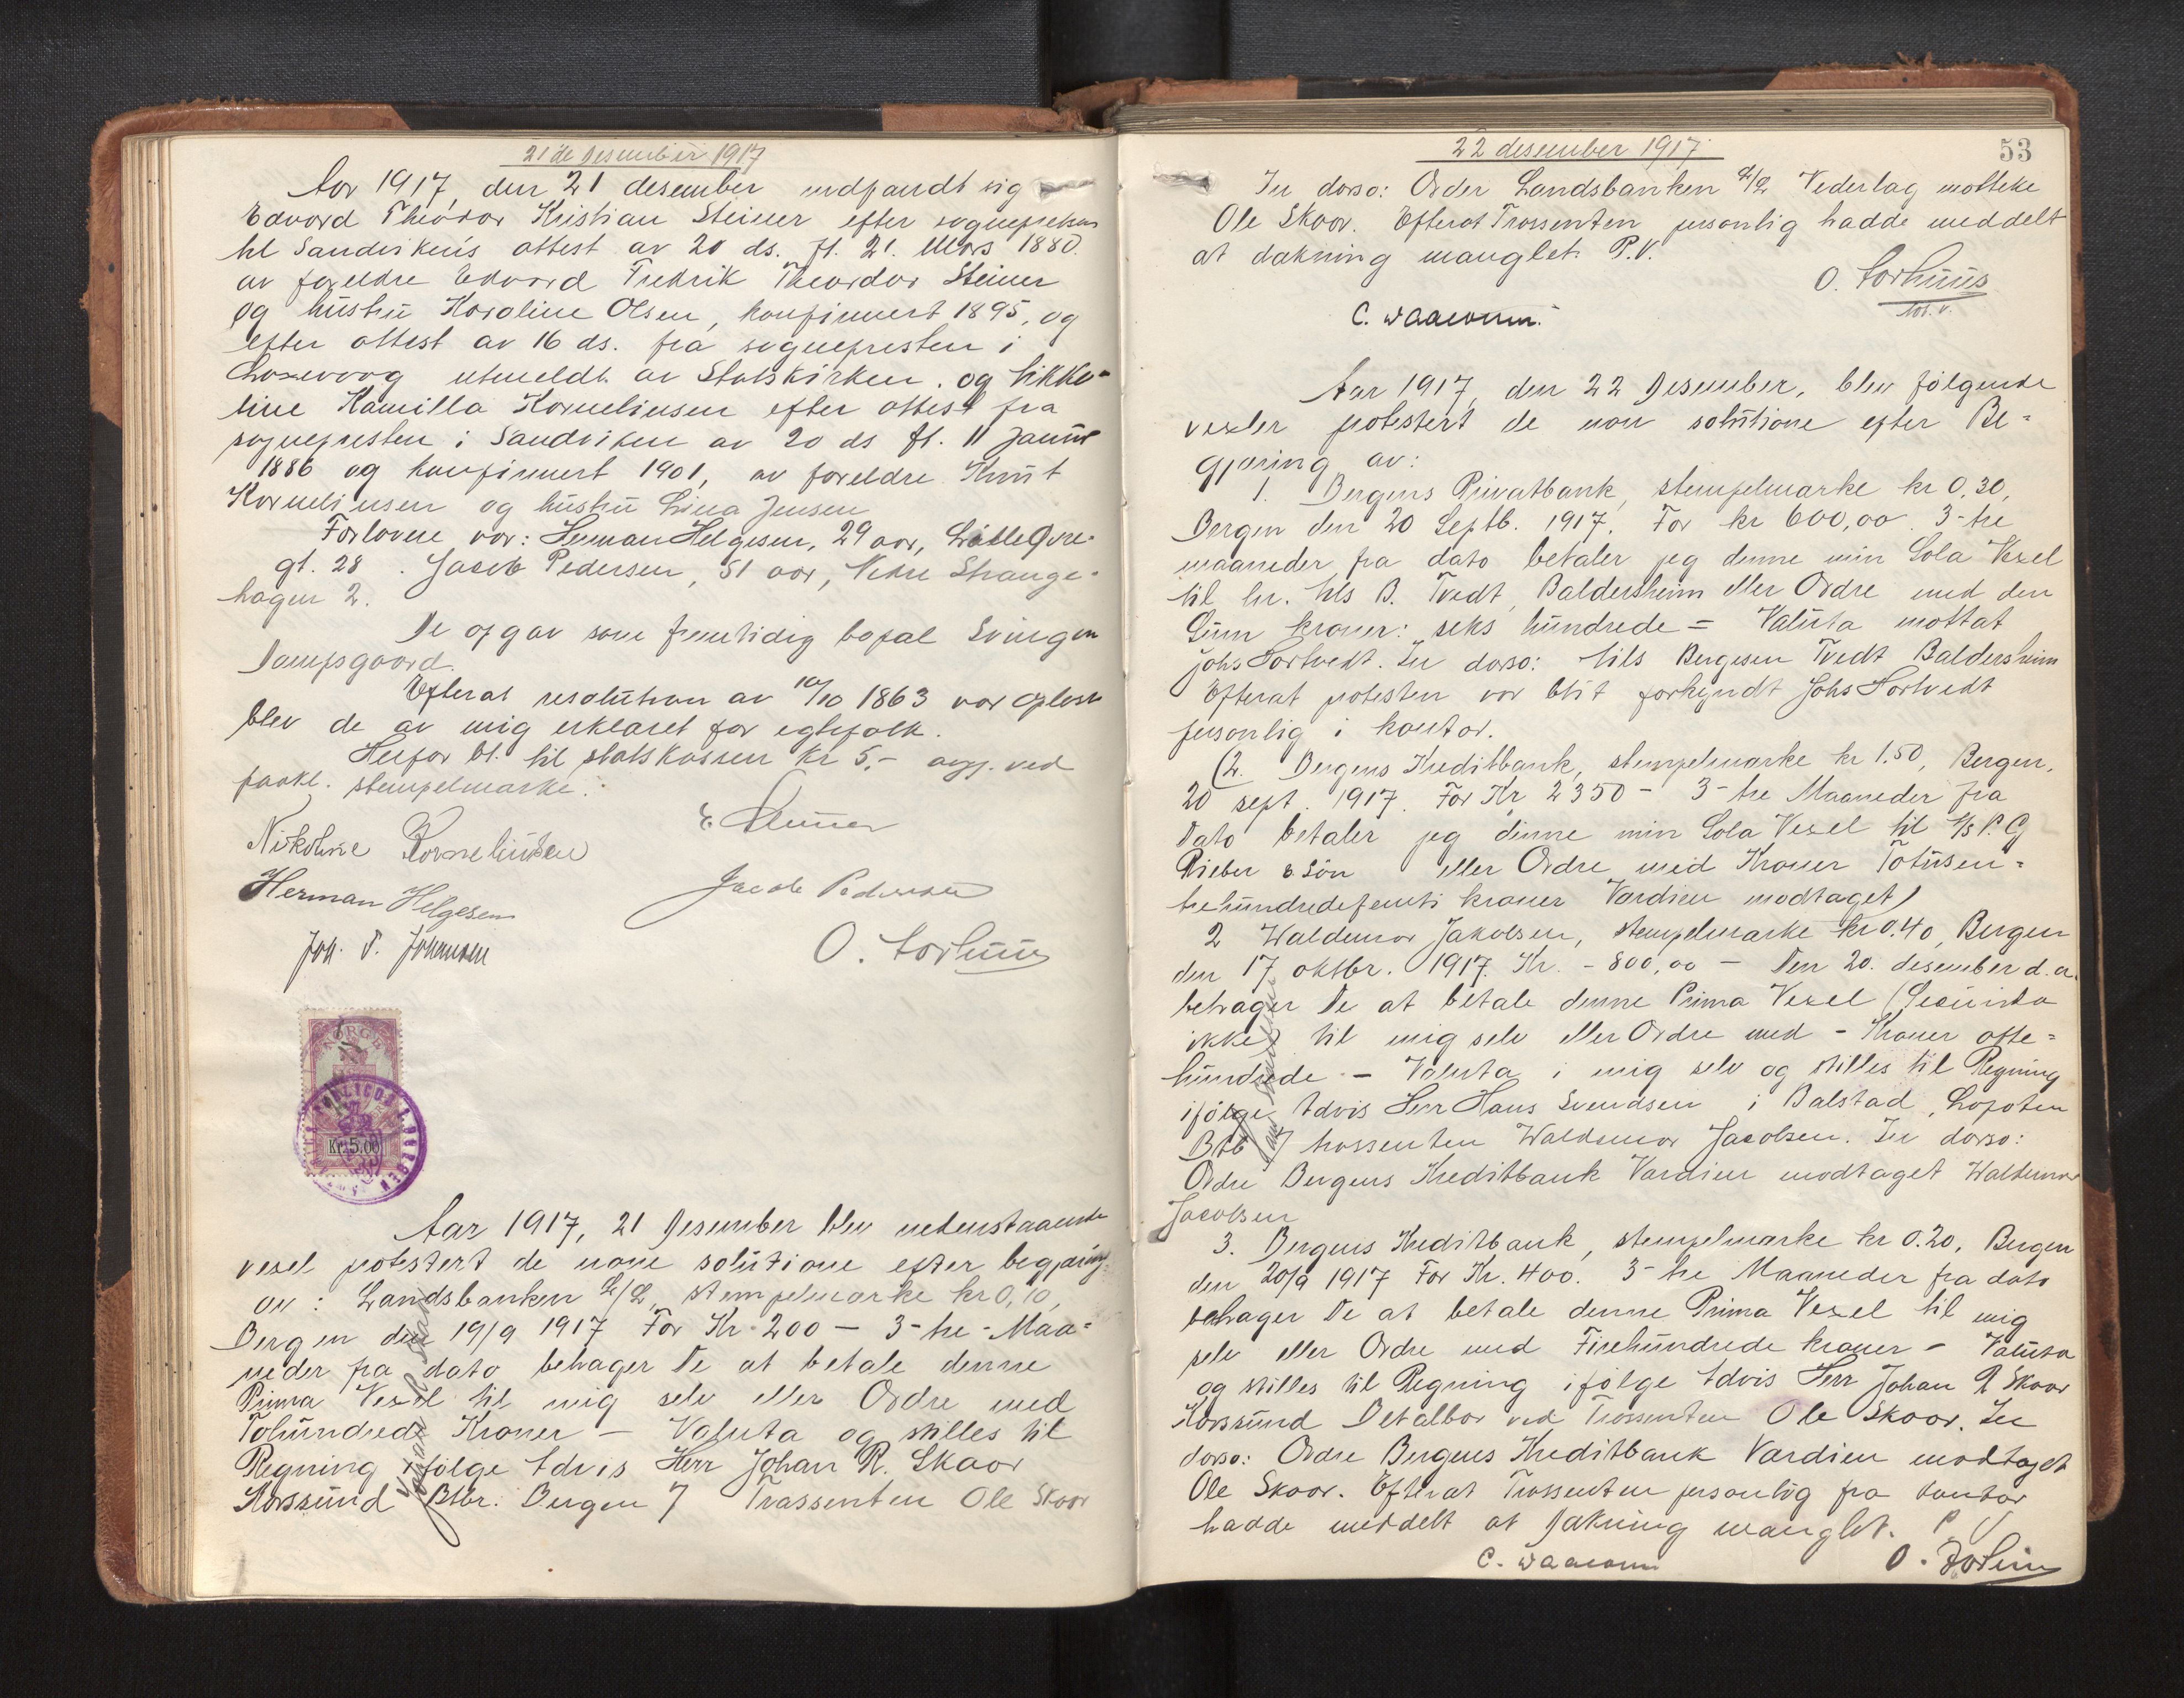 21de Desember 1917
Aar 1917, den 21 desember indfandt sig
Edvard Theodor Kristian Steiner efter sogneprestens
til Sandvikens attest av 20 ds. ft. 21. Mars 1880.
av forældre Edvard Fredrik Theordor Steiner
og hustru Karoline Olsen, konfirmert 1895, og
efter attest av 16 ds. fra sognepresten i
Laxevaag utmeldt av Statskirken. og Nikko-
line Kamilla Korneliusen efter attest fra
sognepresten i Sandviken av 20 ds ft. 11 Januar
1886 og konfirmert 1901, av forældre Knut
Korneliusen og hustru Lina Jensen
Forlovere var: Herman Helgesen, 29 aar, Lille Øvre-
gt. 28. Jacob Pedersen, 51 aar, Nedre Strange-
hagen 2.
De opgav som fremtidig bopæl Svingen
Damsgaard.
Efterat resolution av 10/10 1863 var oplæst
blev de av mig erklæret for egtefolk.
Herfor bt. til statskassen kr 5.- avgj. ved
paakl. stempelmærke.
E. Steiner
Nikoline Korneliusen
Herman Helgesen
Jacob Pedersen
Joh. P. Johansen
O. Aarhuus
NORGE
Kr. 5.00
Aar 1917, 21 Desember blev nedenstaaende
vexel protestert de none solutione efter begjæring
av: Landsbanken A/L, stempelmærke kr 0,10,
Bergen den 19/9 1917 For Kr. 200 — 3-tre-Maa-
neder fra dato behager De at betale denne
Prima Vexel til mig selv eller Ordre med
Tohundrede Kroner — Valuta og stilles til
Regning ifølge Advis Herr Johan R. Skaar
Korssund Btbr. Bergen 7 Trassenten Ole Skaar
Johan R Skaar
22 desember 1917.
53
In dorso: Order Landsbanken A/L Vederlag motteke
Ole Skaar. Efterat Trassenten personlig hadde meddelt
at dækning manglet. P.V.
O. Aarhuus
C. Waaconn.
Aar 1917, den 22 Desember, blev følgende
vexler protestert de non solutione efter Be-
gjæring av:
1. Bergens Privatbank, stempelmærke kr 0,30,
Bergen den 20 Septb. 1917. For kr 600,00 3-tre
maaneder fra dato betaler jeg denne min Sola Vexel
til hr. Nils B. Tvedt, Baldersheim eller Ordre med den
Sum kroner: seks hundrede = Valuta mottat
Johs Hortvedt. In dorso: Nils Bergesen Tvedt Baldersheim
Efterat protesten var blit forkyndt Johs Hortvedt
personlig i kontor.
(2. Bergens Kreditbank, stempelmærke kr 1.50, Bergen,
20 sept. 1917. For Kr 2350 - 3-tre Maaneder fra
Dato betaler jeg denne min Sola Vexel til A/S P. G
Rieber & Søn eller Ordre med Kroner Totusen-
trehundredefemti kroner Værdien modtaget)
2 Waldemar Jakobsen, stempelmærke kr 0.40, Bergen
den 17 oktbr. 1917. Kr. - 800,00 — Den 20. desember d.a.
behager De at betale denne Prima Vexel (Secunda
ikke) til mig selv eller Ordre med - Kroner otte-
hundrede - Valuta i mig selv og stilles til Regning
ifølge Advis Herr Hans Svendsen i Balstad, Lofoten
Btb 7 trassenten Waldemar Jacobsen. In dorso:
Ordre Bergens Kreditbank Værdien modtaget Waldemar
Jacobsen
3. Bergens Kreditbank, stempelmærke kr 0.20, Bergen
den 20/9 1917 For Kr. 400. 3-tre Maaneder fra dato
behager De at betale denne Prima Vexel til mig
selv eller Ordre med Firehundrede kroner - Valuta
og stilles til Regning ifølge Advis Herr Johan R Skaar
Korssund Betalbar ved Trassenten Ole Skaar. In
dorso: Ordre Bergens Kreditbank Værdien modtaget
Ole Skaar. Efterat Trassenten personlig fra kontor
hadde meddelt at Dækning manglet. P V
C. Waaconn
O. Aarhuus